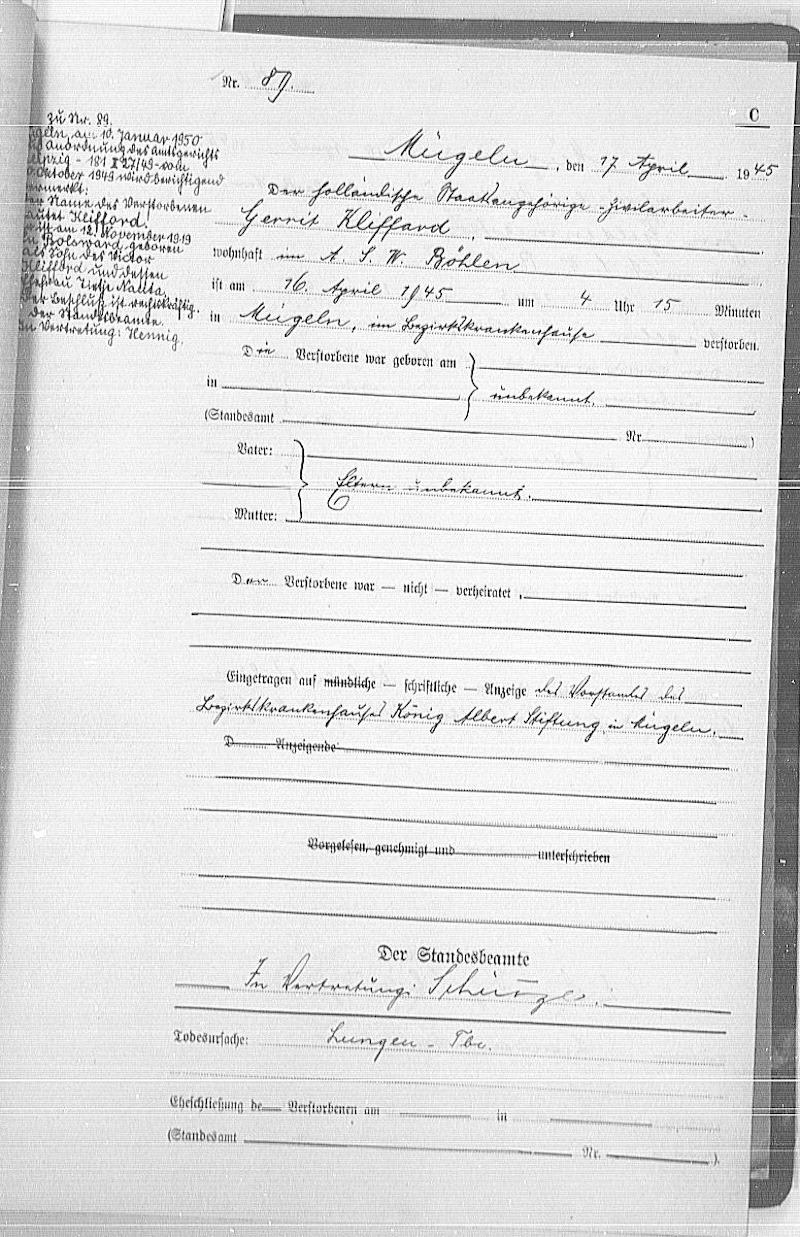 Nr. 89.
C
zu Nr. 89.
ügeln, am 10. Januar 1950
Anordnung des Amtsgerichts
eipzig - 181 II 27/49 - vom
Oktober 1949 wird berichtigend
ermerkt:
er Name des Verstorbenen
autet Klifford.
r ist am 12. November 1919
in Bolsward geboren
als Sohn des Victor
Klifford und dessen
Ehefrau Tietje Nauta.
Der Beschluß ist rechtskräftig.
Der Standesbeamte.
In Vertretung: Hennig.
Mügeln, den 17 April 1945
Der holländische Staatsangehörige - Zivilarbeiter -
Gerrit Kliffard,
wohnhaft im A. S. W. Böhlen
ist am 16. April 1945 um 4 Uhr 15 Minuten
in Mügeln, im Bezirkskrankenhause verstorben.
Die Verstorbene war geboren am
in unbekannt.
(Standesamt Nr. )
Vater:
Eltern unbekannt.
Mutter:
Der Verstorbene war — nicht — verheiratet.
Eingetragen auf mündliche — schriftliche — Anzeige des Vorstandes des
Bezirkskrankenhauses König Albert Stiftung in Mügeln.
D Anzeigende
Vorgelesen, genehmigt und unterschrieben
Der Standesbeamte
In Vertretung:
Todesursache: Lungen - Tbc.
Eheschließung de Verstorbenen am in
(Standesamt Nr. ).